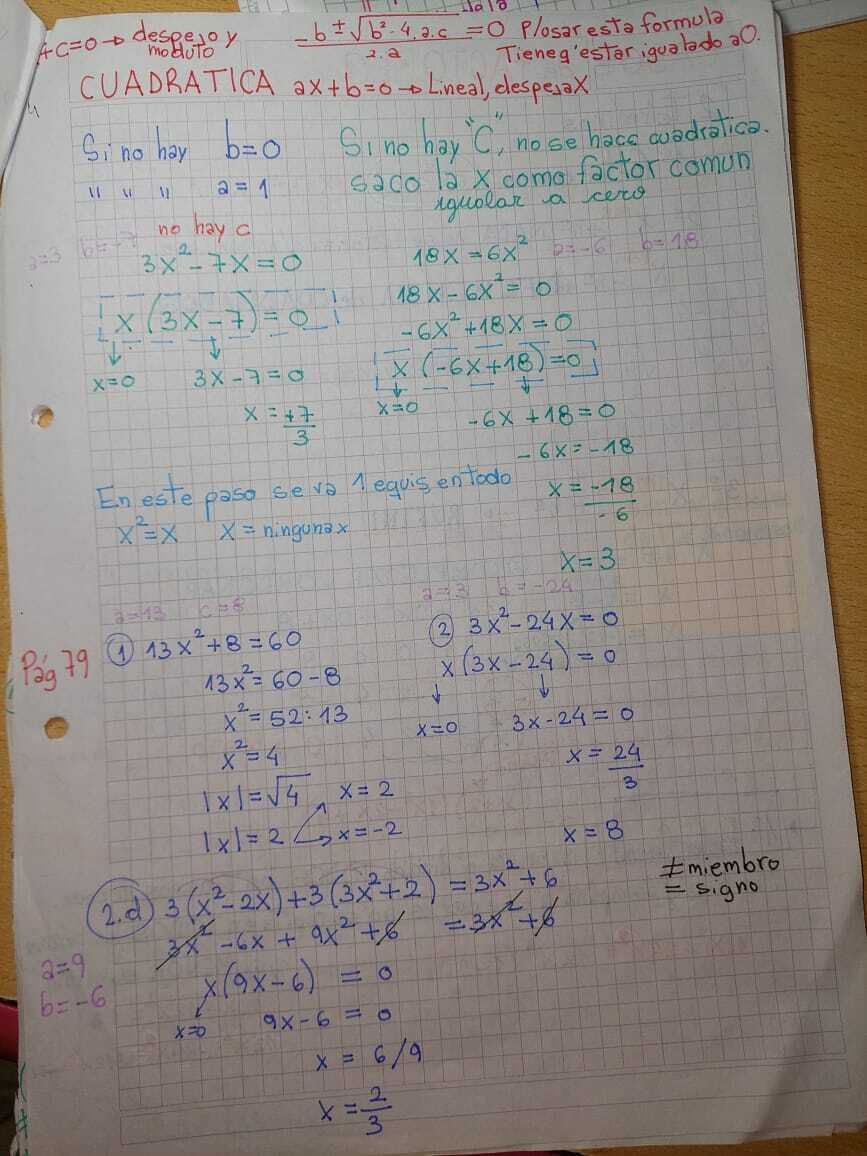 +C=0 → despejo y
moduto
-b ± √b²-4.a.c = 0
2.a
P/osar esta formula
Tiene q' estar igualado a 0.
CUADRATICA ax+b=0 → Lineal, despeja X
Si no hay b=0
" " " a=1
Si no hay "C", no se hace cuadratica.
saco la x como factor comun
igualar a cero
no hay c
a=3 b=-7
3x²-7x=0
x(3x-7)=0
x=0 3x-7=0
x=+7
3
18x=6x² a=-6 b=18
18x-6x²=0
-6x²+18x=0
x(-6x+18)=0
x=0
-6x+18=0
-6x=-18
x=-18
-6
x=3
En este paso se va 1 equis, en todo
x²=x x=ninguna x
Pág 79
a=13 c=8
1 13x²+8=60
13x²=60-8
x²=52:13
x²=4
|x|=√4 x=2
|x|=2 → x=-2
a=3 b=-24
2 3x²-24x=0
x(3x-24)=0
x=0 3x-24=0
x=24
3
x=8
≠miembro
= signo
2.d 3(x²-2x)+3(3x²+2) = 3x²+6
3x²-6x+9x²+6 =3x²+6
a=9
b=-6
x(9x-6) = 0
x=0 9x-6 = 0
x = 6/9
x = 2
3